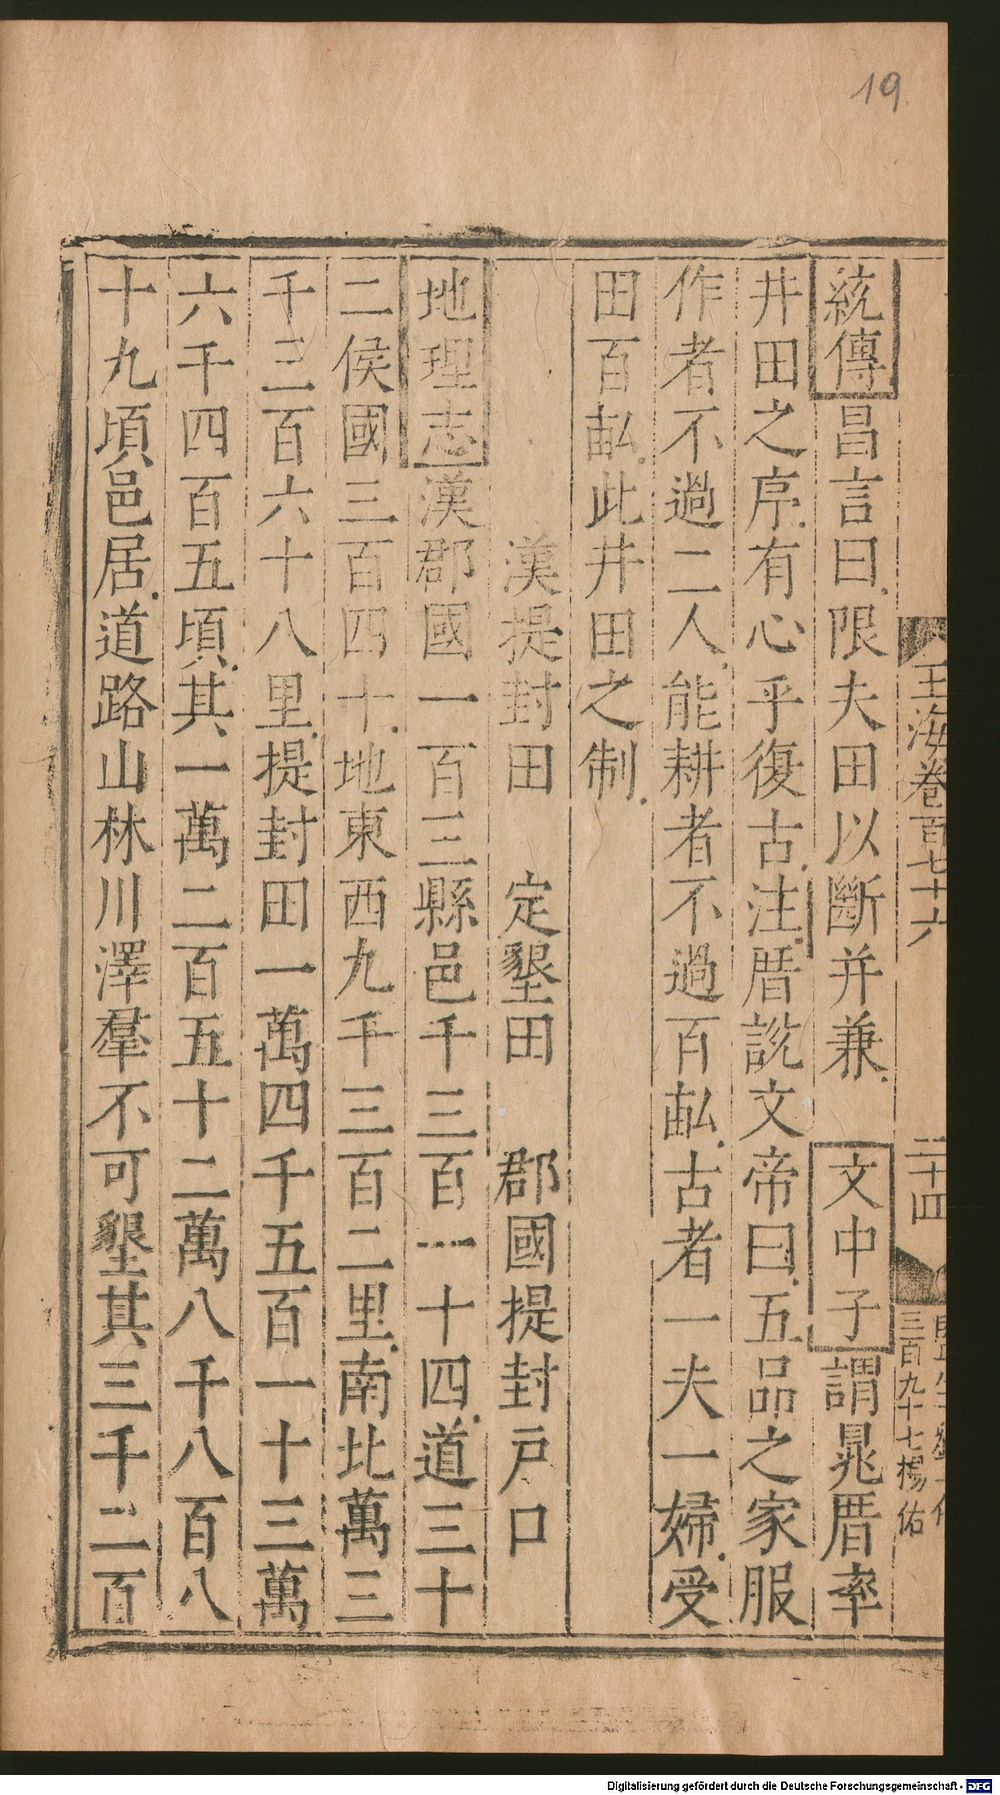 19
玉海卷百七十六
二十四
三百九十七楊佑
統傳昌言曰限夫田以斷并兼 文中子謂晁厝率
井田之序有心乎復古注厝說文帝曰五品之家服
作者不過二人能耕者不過百畝古者一夫一婦受
田百畝此井田之制
漢提封田 定墾田 郡國提封戶口
地理志漢郡國一百三縣邑千三百一十四道三十
二侯國三百四十地東西九千三百二里南北萬三
千三百六十八里提封田一萬四千五百一十三萬
六千四百五頃其一萬二百五十二萬八千八百八
十九頃邑居道路山林川澤羣不可墾其三千二百
Digitalisierung gefördert durch die Deutsche Forschungsgemeinschaft - DFG